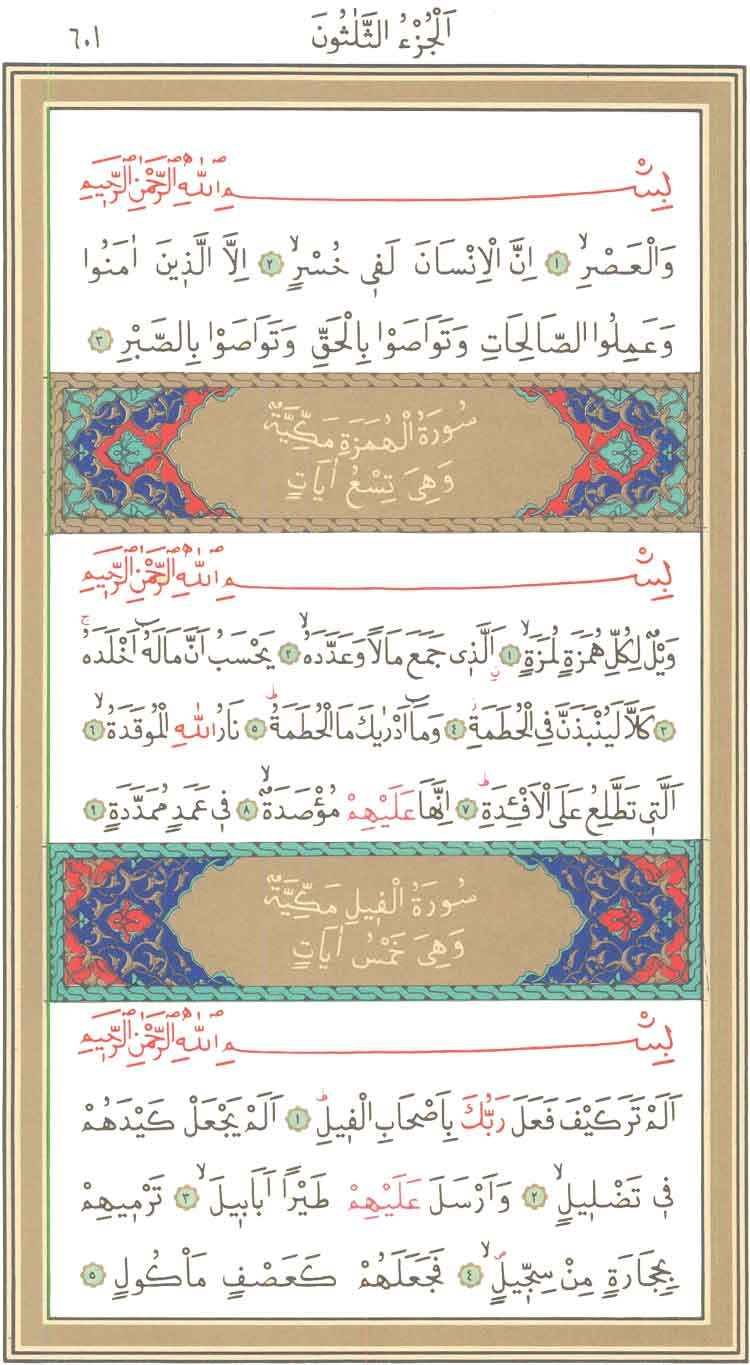 اَلْجُزْءُ الثَّلٰثُونَ ٦٠١
بِسْمِ اللّٰهِ الرَّحْمٰنِ الرَّحِيمِ
وَالْعَصْرِۙ ١ اِنَّ الْاِنْسَانَ لَفٖى خُسْرٍۙ ٢ اِلَّا الَّذٖينَ اٰمَنُوا
وَعَمِلُوا الصَّالِحَاتِ وَتَوَاصَوْا بِالْحَقِّ وَتَوَاصَوْا بِالصَّبْرِ ٣
سُورَةُ الْهُمَزَةِ مَكِّيَّةٌ
وَهِىَ تِسْعُ اٰيَاتٍ
بِسْمِ اللّٰهِ الرَّحْمٰنِ الرَّحِيمِ
وَيْلٌ لِكُلِّ هُمَزَةٍ لُمَزَةٍۙ ١ اَلَّذٖى جَمَعَ مَالاً وَعَدَّدَهُۙ ٢ يَحْسَبُ اَنَّ مَالَهُٓ اَخْلَدَهُۚ
٣ كَلَّا لَيُنْبَذَنَّ فِى الْحُطَمَةِۘ ٤ وَمَٓا اَدْرٰيكَ مَا الْحُطَمَةُۜ ٥ نَارُ اللّٰهِ الْمُوقَدَةُۙ ٦
اَلَّتٖى تَطَّلِعُ عَلَى الْاَفْـِٔدَةِۜ ٧ اِنَّهَا عَلَيْهِمْ مُؤْصَدَةٌۙ ٨ فٖى عَمَدٍ مُمَدَّدَةٍ ٩
سُورَةُ الْفٖيلِ مَكِّيَّةٌ
وَهِىَ خَمْسُ اٰيَاتٍ
بِسْمِ اللّٰهِ الرَّحْمٰنِ الرَّحِيمِ
اَلَمْ تَرَ كَيْفَ فَعَلَ رَبُّكَ بِاَصْحَابِ الْفٖيلِۜ ١ اَلَمْ يَجْعَلْ كَيْدَهُمْ
فٖى تَضْلٖيلٍۙ ٢ وَاَرْسَلَ عَلَيْهِمْ طَيْرًا اَبَابٖيلَۙ ٣ تَرْمٖيهِمْ
بِحِجَارَةٍ مِنْ سِجّٖيلٍۙ ٤ فَجَعَلَهُمْ كَعَصْفٍ مَاْكُولٍ ٥